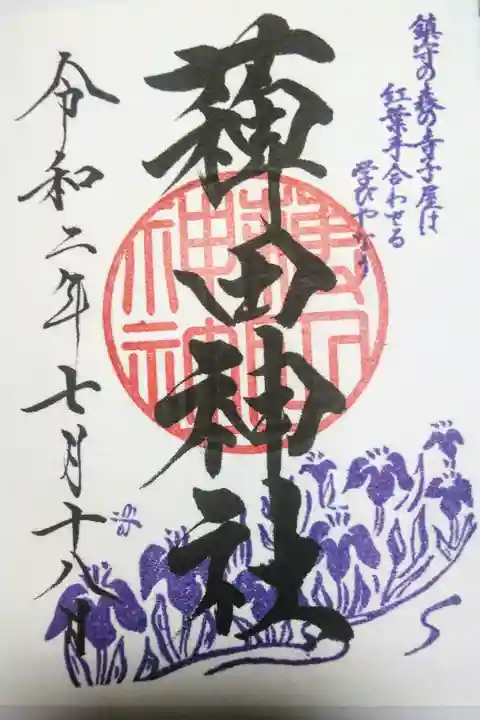 鎮守の森の寺子屋は
紅葉手合わせる
学びやなり
薭田神社
令和二年七月十八日